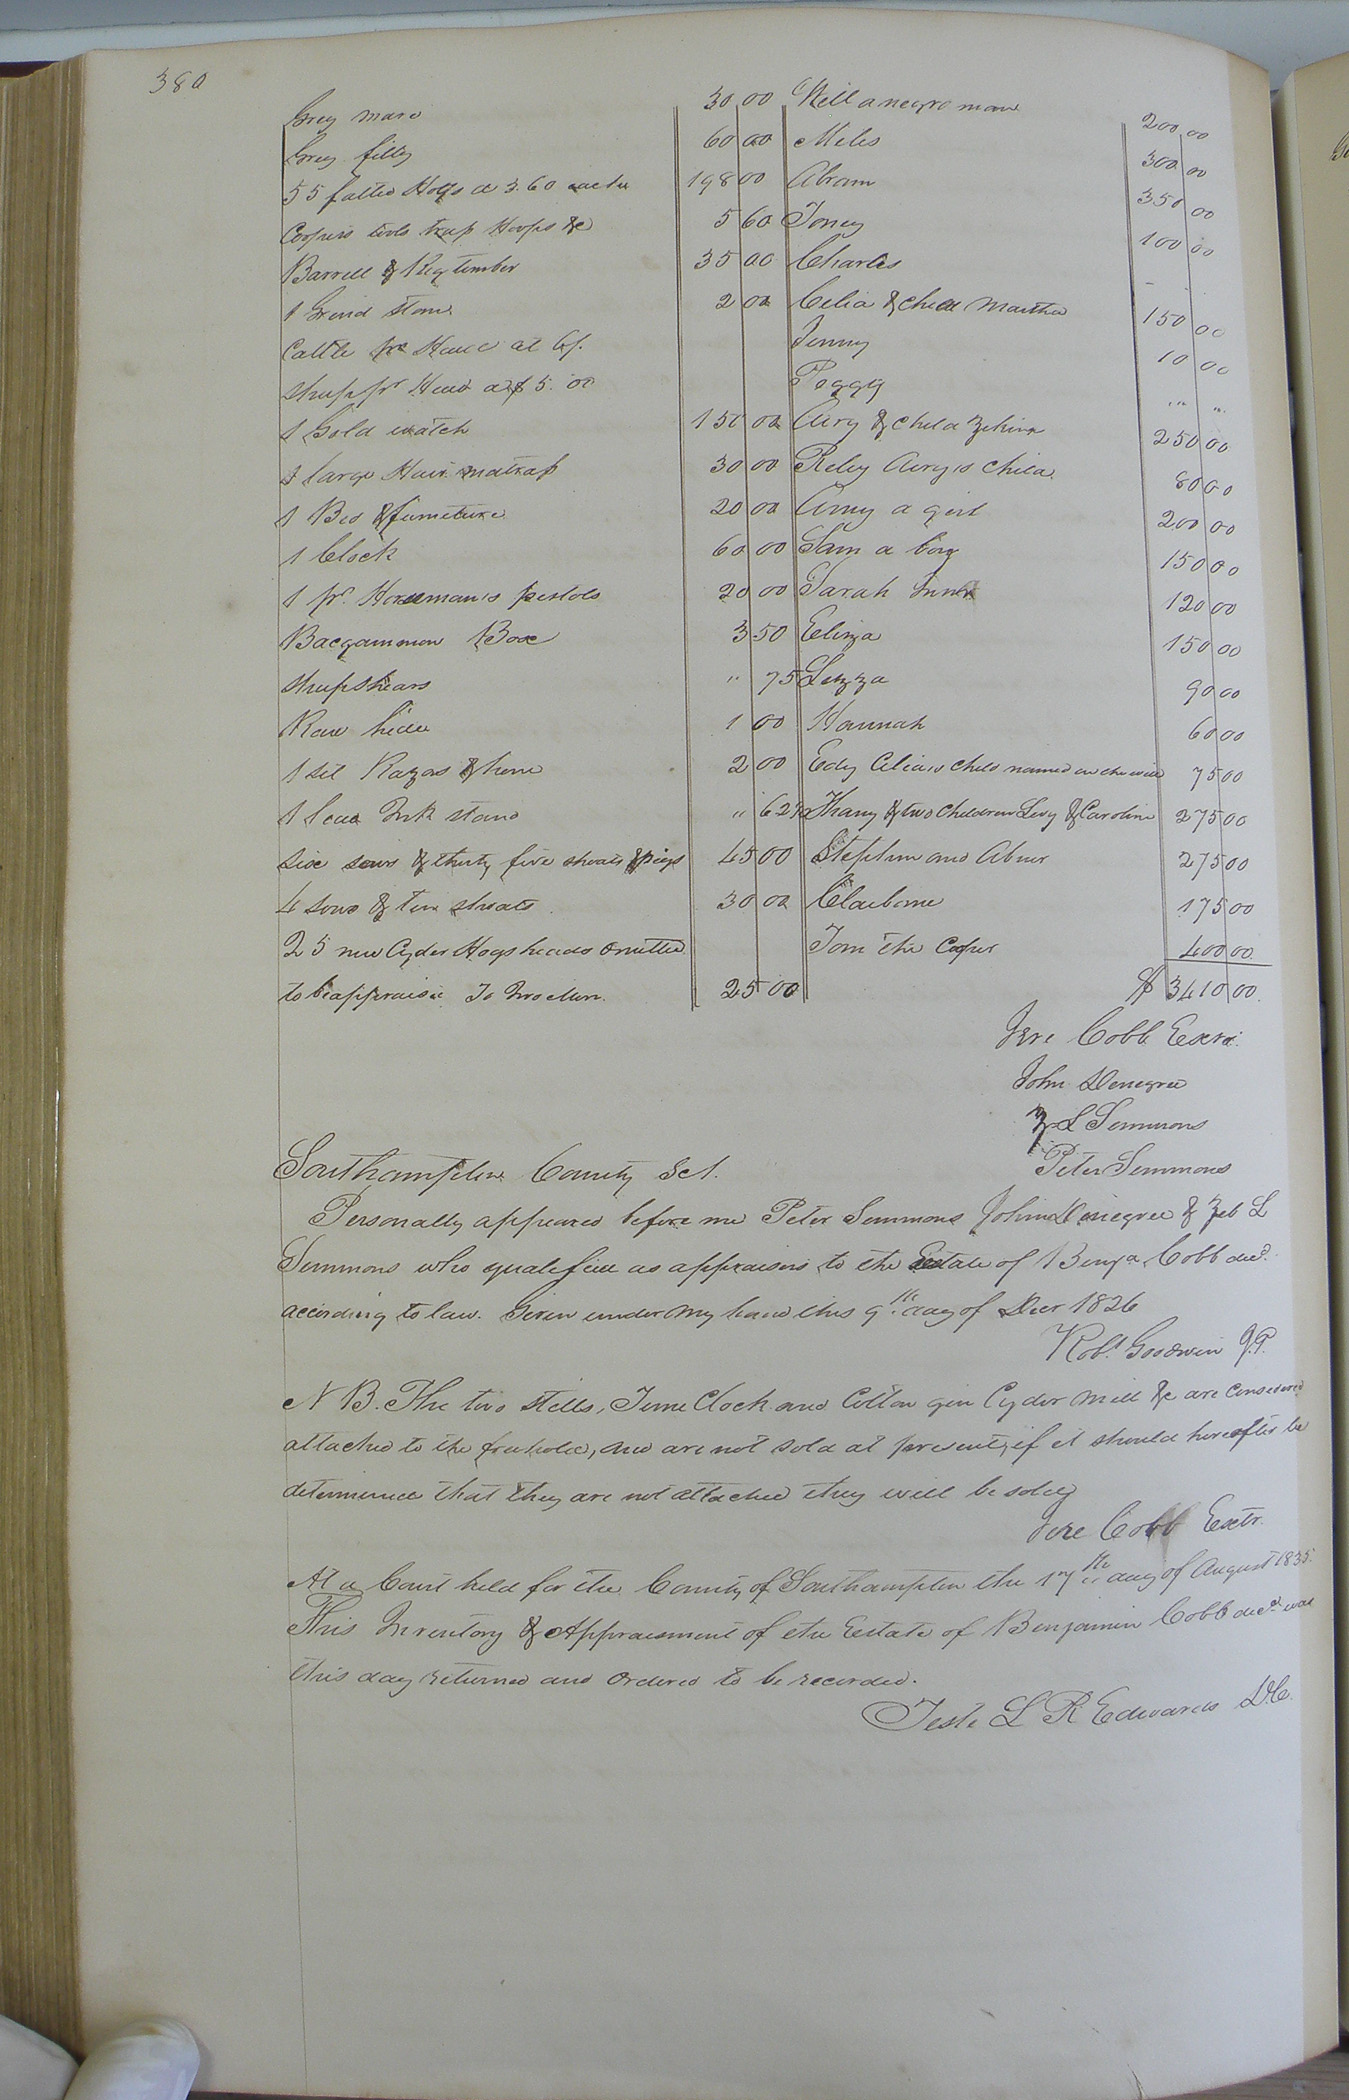 380
Grey mare 30 00
Grey filly 60 00
55 fatted Hogs a 3.60 each 198 00
Coopers tools trap Hoops &c 5 60
Barrell & Keg timber 35 00
1 Grind stone 2 00
Cattle pr Head at 6/.
sheep pr Head a $5.00
1 Gold watch 150 00
1 large Hair matrass 30 00
1 Bed & furniture 20 00
1 Clock 60 00
1 pr. Horsman's pistols 20 00
Bacgammon Box 3 50
sheepshears " 75
Raw hide 1 00
1 set Razors & hone 2 00
1 lead Ink stand " 62½
six sows & thirty five shoats & pigs 45 00
4 sows & ten shoats 30 00
25 new Cyder Hogsheads omitted
to be appraised To Trocken. 25 00
Will a negro man 200 00
Miles 300 00
Abram 350 00
Toney 100 00
Charles - -
Celia & child Martha 150 00
Jenny 10 00
Peggy " "
Airy & child 250 00
Reley Airy's child 80 00
Amy a girl 200 00
Sam a boy 150 00
Sarah 120 00
Eliza 150 00
Lizza 90 00
Hannah 60 00
Edy Celia's child named in the will 75 00
Thany & two children Levy & Caroline 275 00
Stephen and Abner 275 00
Claiborne 175 00
Tom the Cooper 400 00
$ 3410 00
Jere Cobb Exer.
John Denegree
Z L Simmons
Peter Simmons
Southampton County Sct.
Personally appeared before me Peter Simmons John Denegree & Zeb L
Simmons who qualified as appraisers to the Estate of Benja Cobb decd.
according to law. Given under my hand this 9th. day of Decr 1826
Robt. Goodwin J.P.
N B. The two stills, Time Clock and Cotton gin Cyder mill &c are considered
attached to the freehold, and are not sold at present, if it should hereafter be
determined that they are not attached they will be sold
Jere Cobb Exctr.
At a Court held for the County of Southampton the 17th day of August 1835.
This Inventory & Appraisment of the Estate of Benjamin Cobb decd was
this day returned and ordered to be recorded.
Teste L R Edwards D.C.